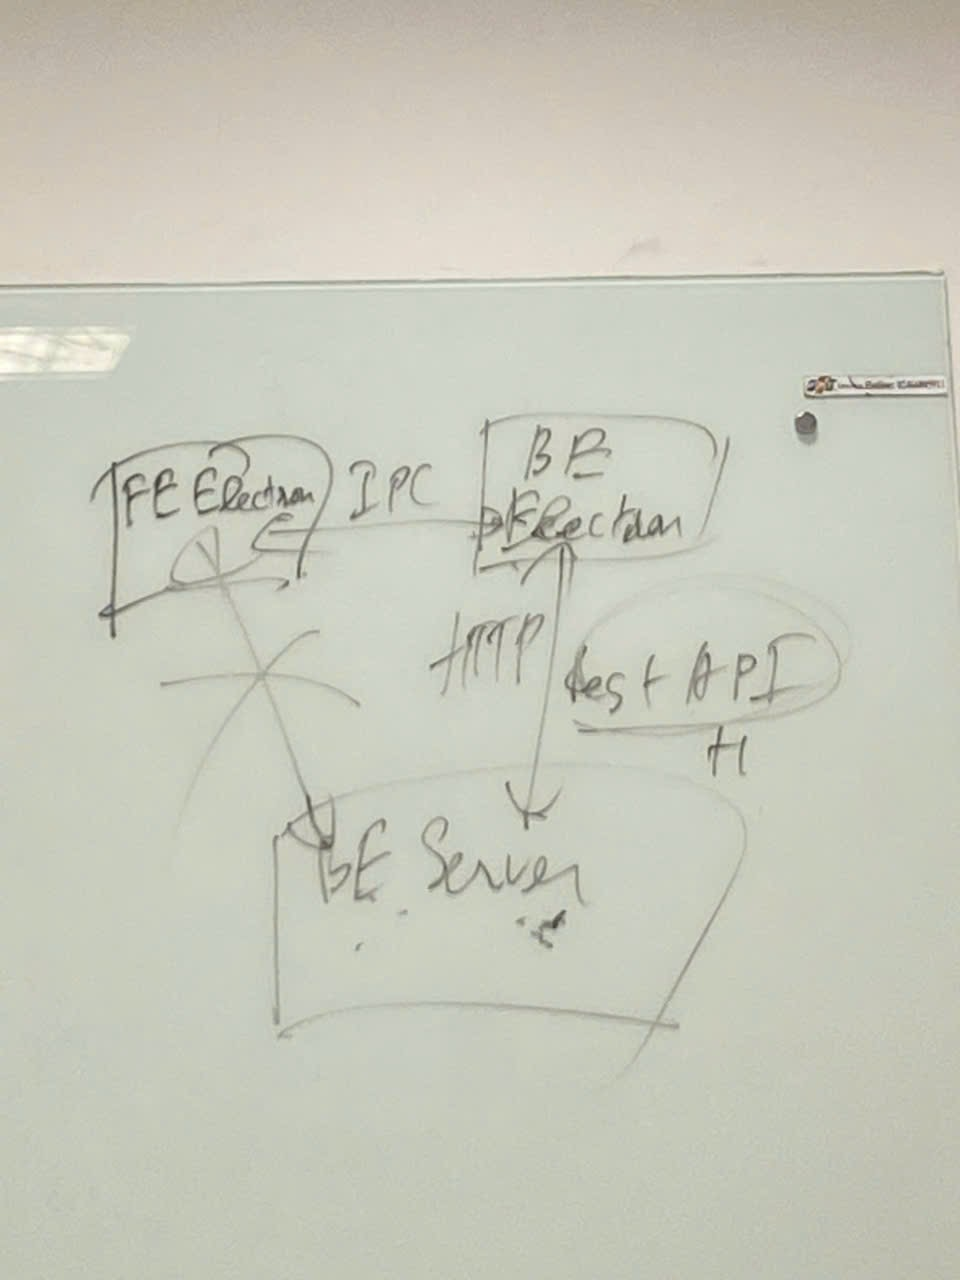 FE Electron
IPC
BE
Electron
HTTP
Rest API
H
BE Server